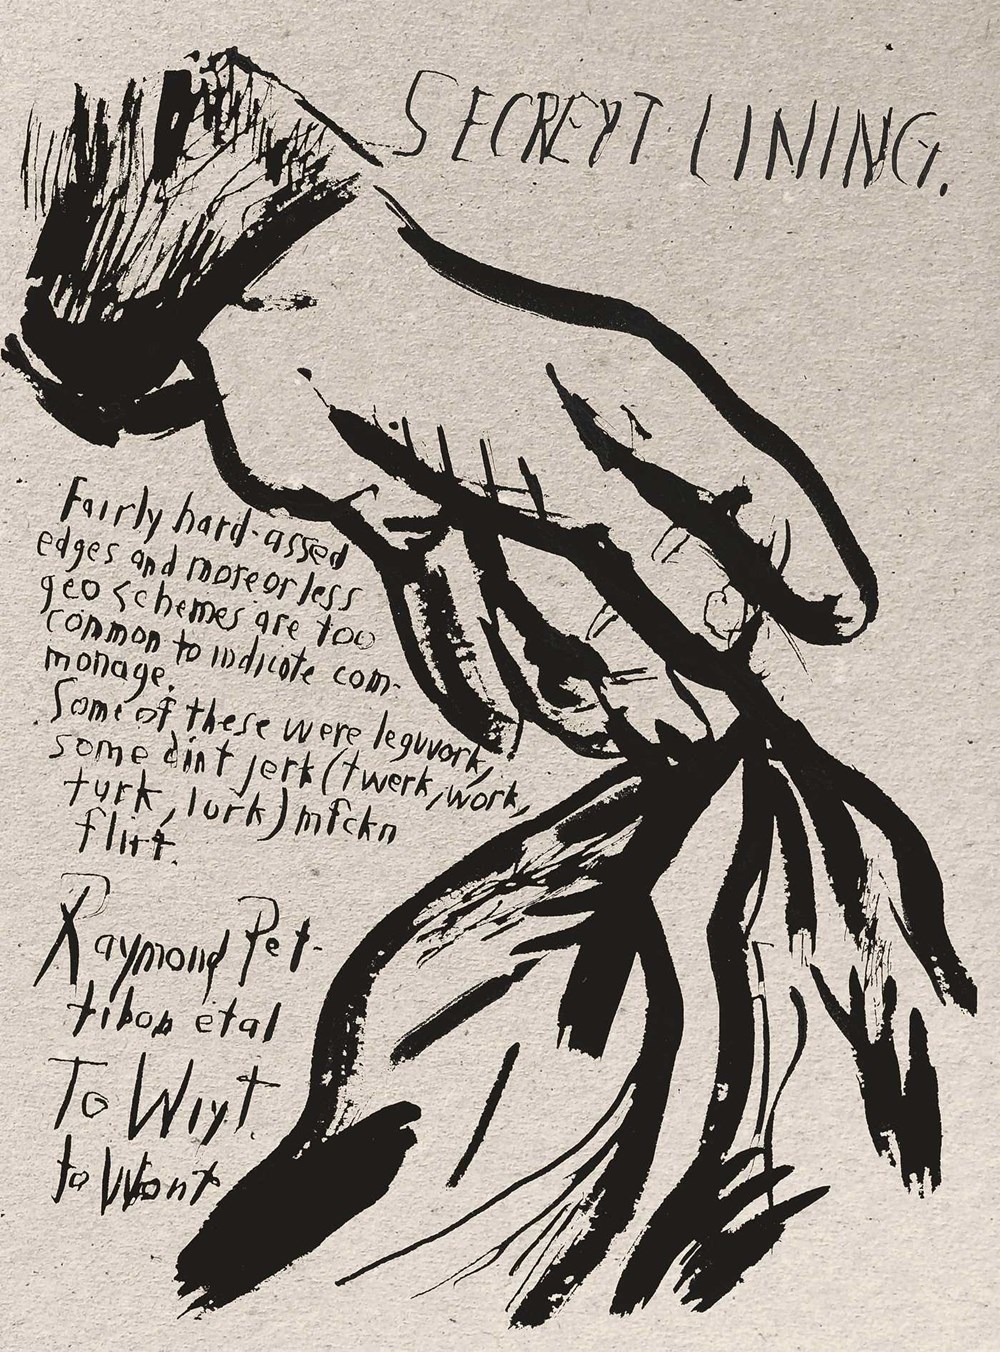 SECREYT LINING.
Fairly hard-assed
edges and more or less
geo schemes are too
common to indicate com-
monage.
Some of these were leguvork,
some dint jerk (twerk, work,
turk, lurk) mfckn
flirt.
Raymond Pet-
tibon et al
To Wiyt.
to Wont